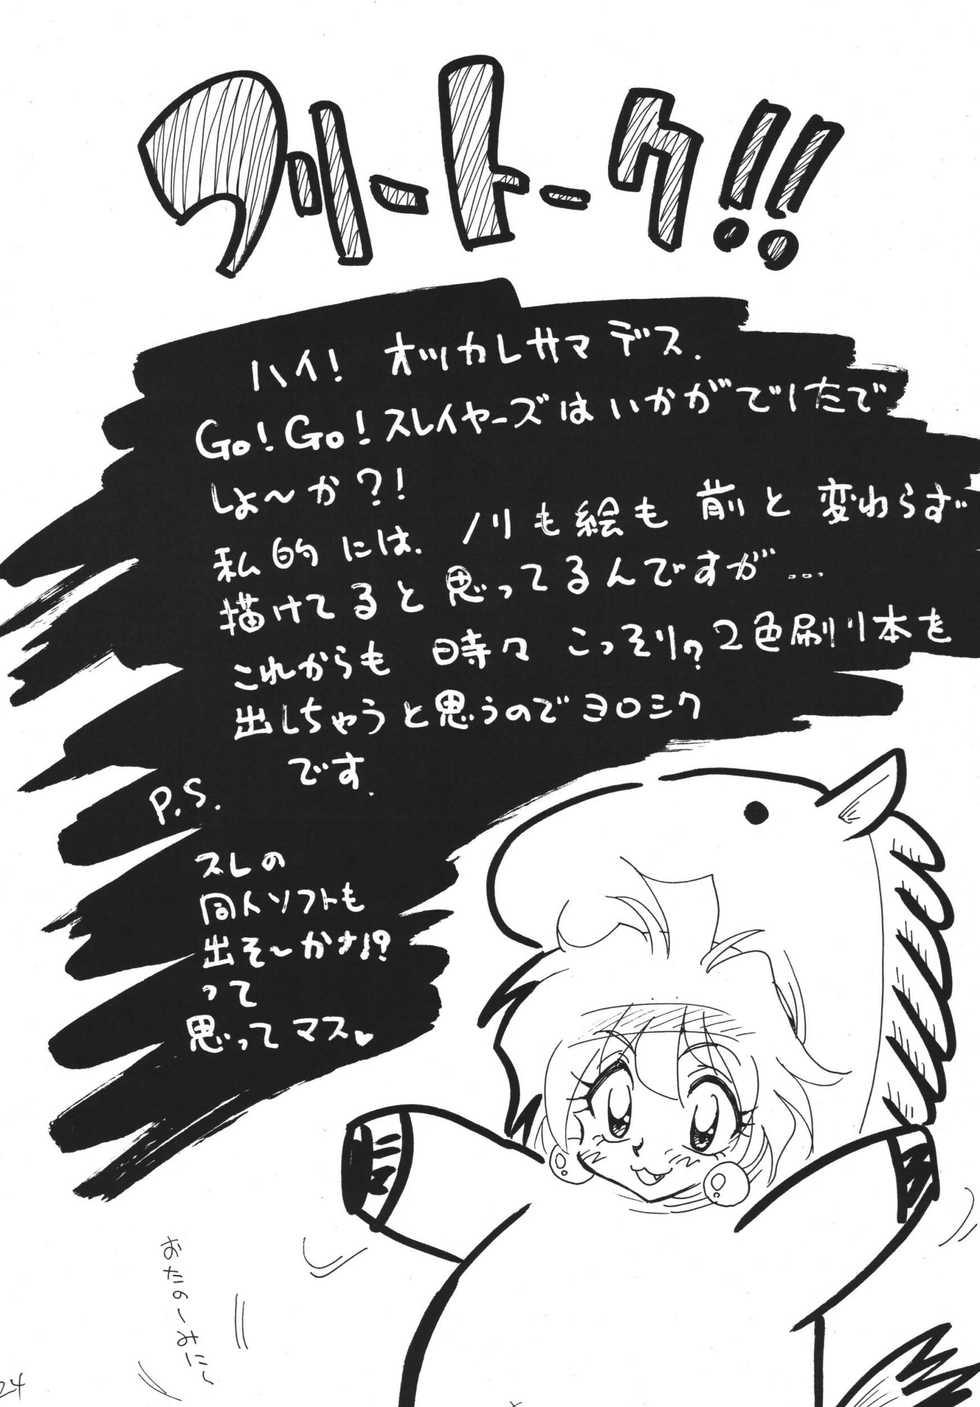 フリートーク!!
ハイ! オツカレサマデス.
Go!Go!スレイヤーズはいかがでしたで
しょ〜か?!
私的には、ノリも絵も前と変わらず
描けてると思ってるんですが...
これからも時々こっそり?2色刷り本を
出しちゃうと思うのでヨロシク
です.
P.S.
スレの
同人ソフトも
出そ〜かな!?
って
思ってマス♥
おたのーみにー
24